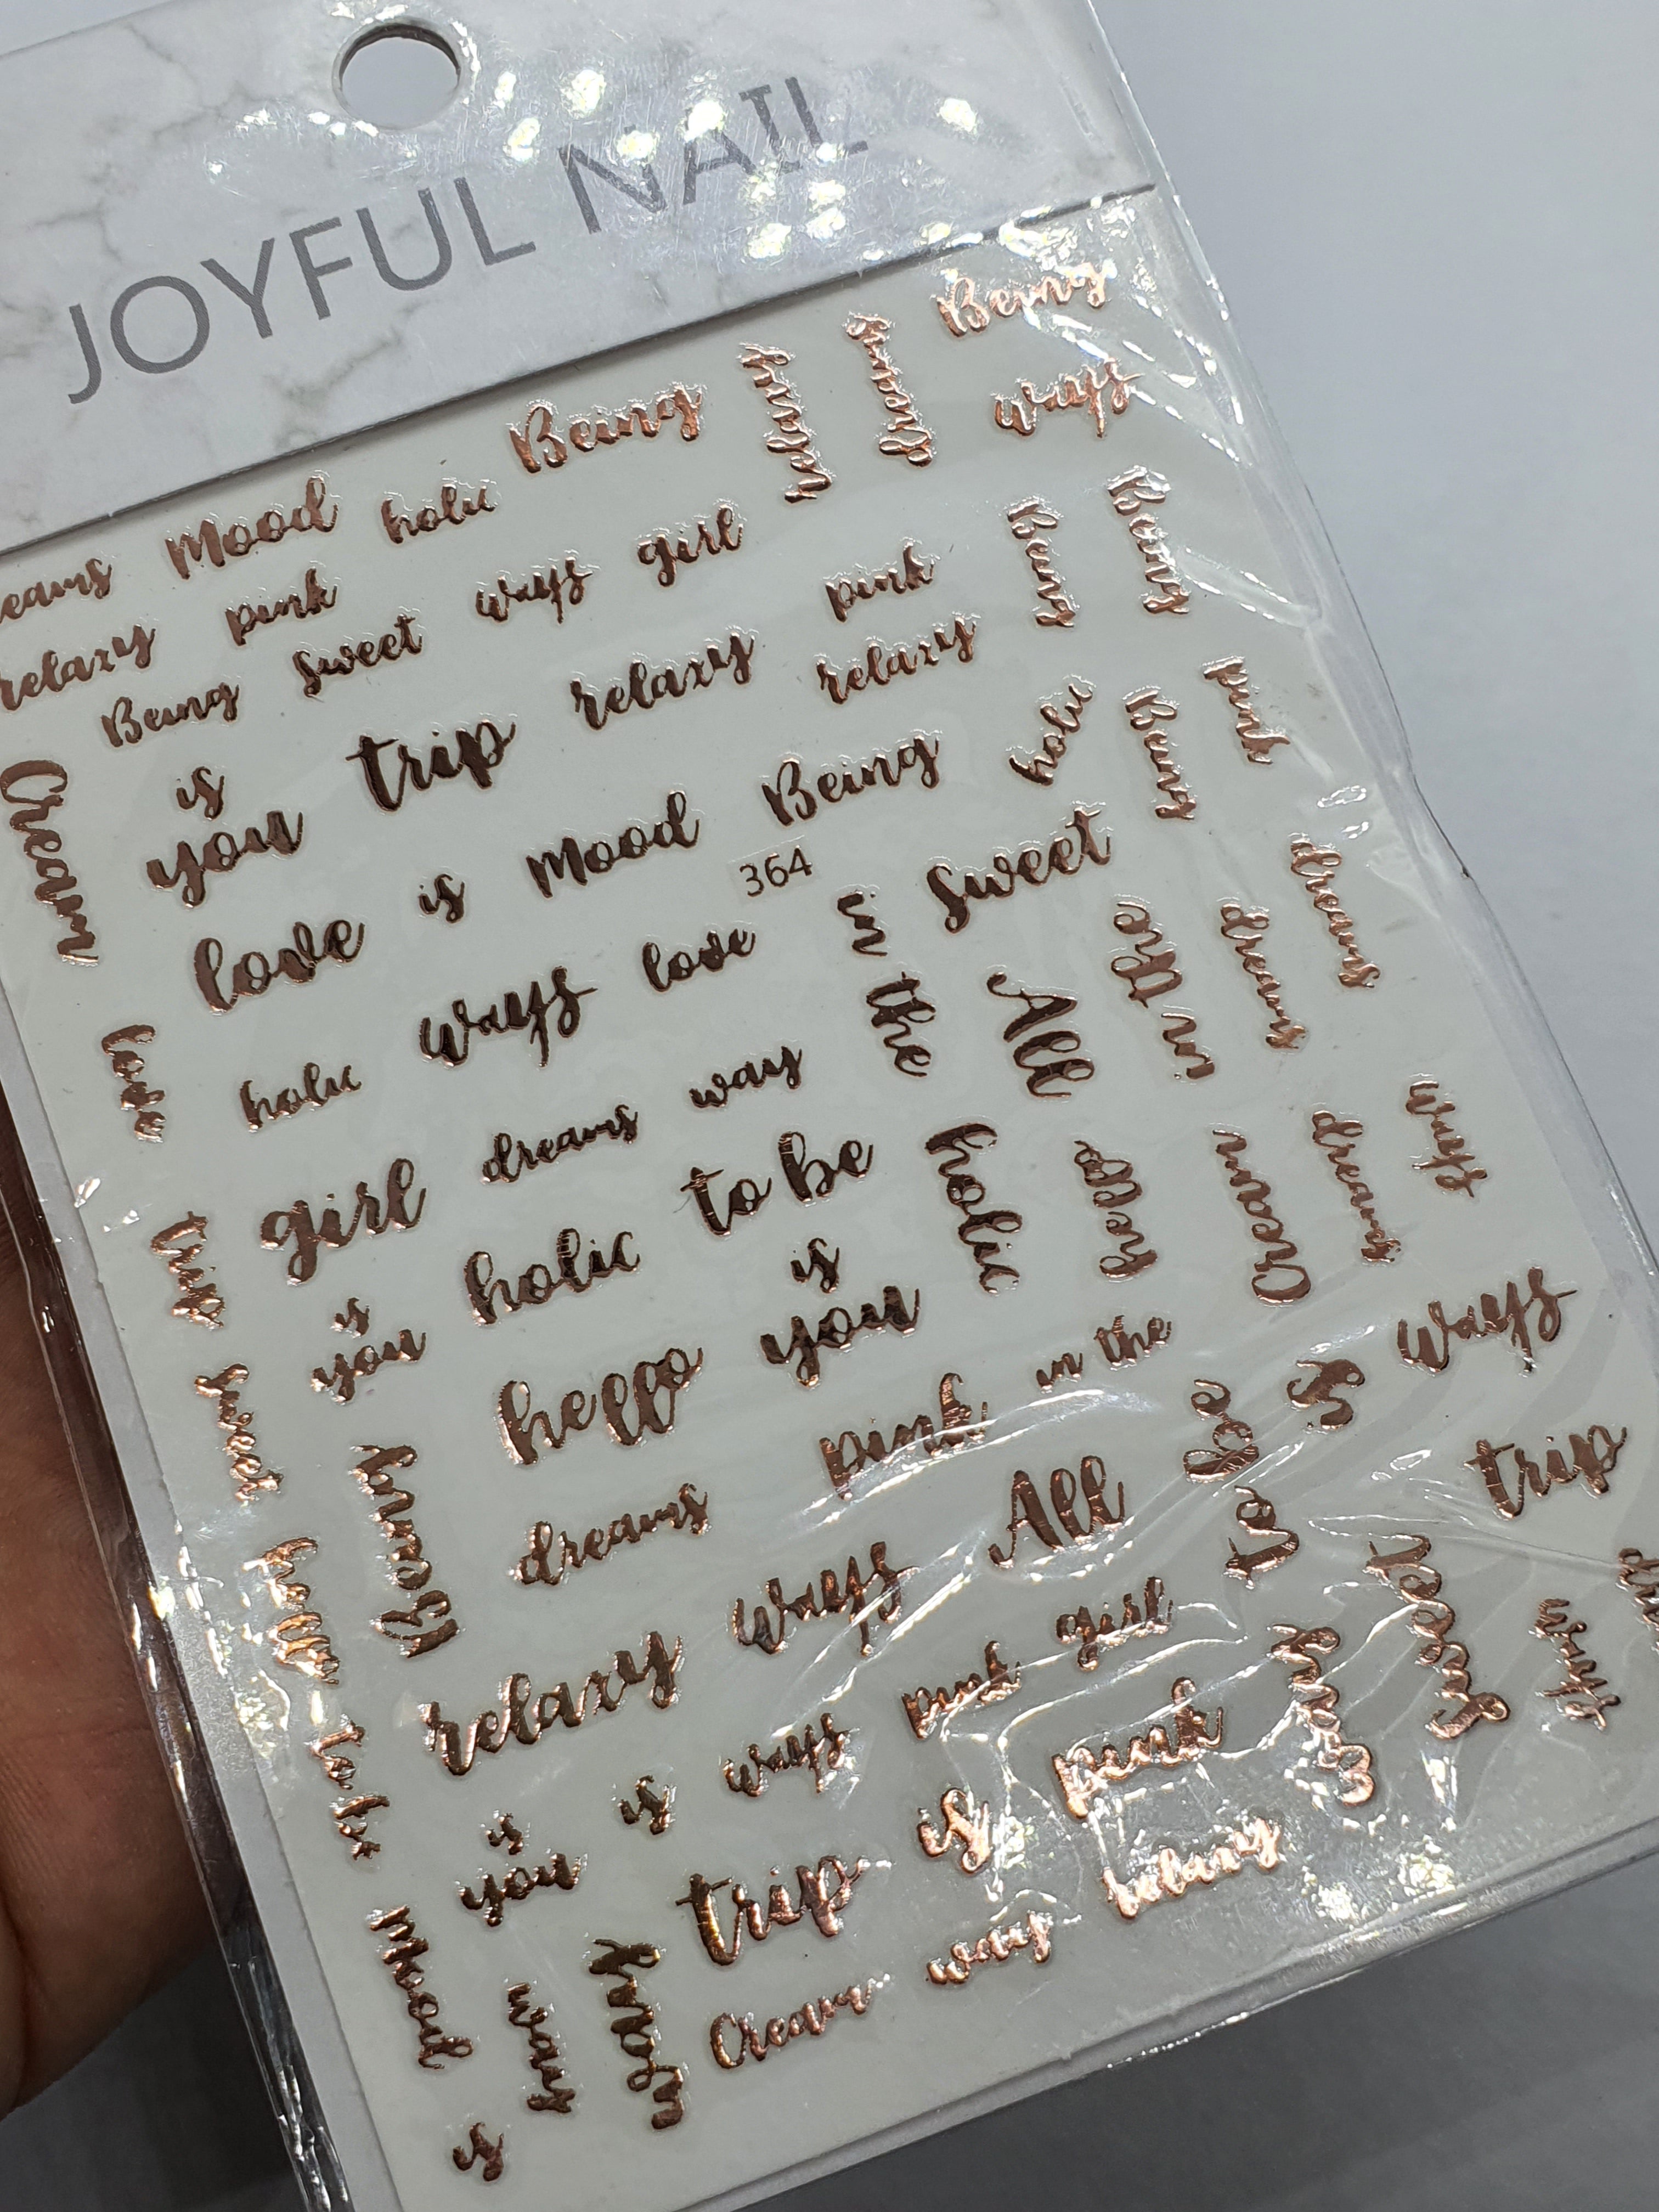 JOYFUL NAIL
Being
dreams
ways
Being
Mood
holic
pink
ways
girl
Being
Being
relaxy
Being
sweet
pink
relaxy
relaxy
trip
is
you
Cream
Being
holic
Being
pink
Mood
is
364
sweet
dreams
love
love
in the
All
in the
dreams
ways
love
holic
dreams
way
ways
girl
to be
holic
Cream
dreams
trip
holic
is
you
is
you
hello
in the
ways
sweet
pink
is
trip
Being
dreams
All
to be
hello
ways
sweet
ways
relaxy
girl
pink
to be
ways
pink
is
is
you
is
trip
relaxy
Mood
way
Cream
way
is